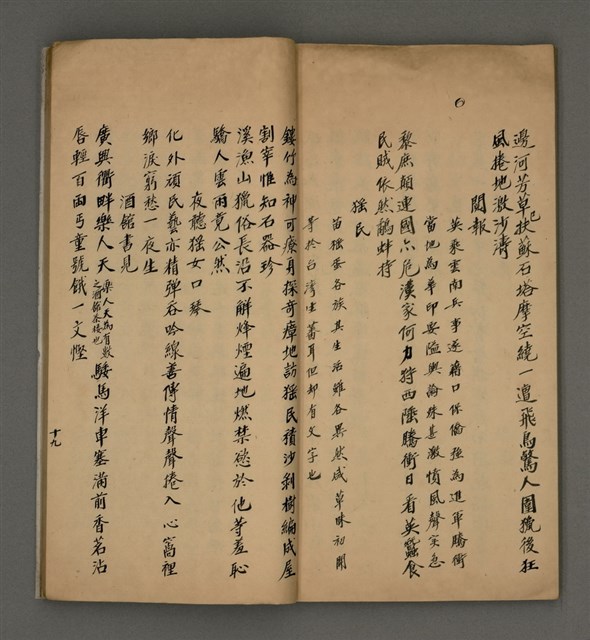 6
邊河芳草圯扶蘇石塔摩空繞一遭飛鳥驚人圍獵後狂
風捲地激沙濤
閱報
英乘雲南兵事遂藉口保僑強為進軍騰衝
當地為華印要隘輿論殊甚激憤風聲突急
黎庶顛連國亦危漢家何力特西陲騰衝日看英蠶食
民賊依然鷸蚌持
猺民
苗猺蛋各族其生活雖各異然咸草昧初開
等於台灣生蕃耳但却有文字也
鏤竹為神可療身探奇瘴地訪猺民積沙剁樹編成屋
割宰惟知石器珍
溪漁山獵俗長沿不解烽煙遍地燃禁慾於他等羞恥
驕人雲雨竟公然
夜聽猺女口琴
化外頑民藝亦精彈吞吟線善傳情聲聲捲入心窩裡
鄉淚窮愁一夜生
酒館書見
廣興衢畔樂人天樂人天為有數之酒餚茶楼也驕馬洋車塞滿前香茗沾
唇輕百兩丐童號餓一文慳
十九